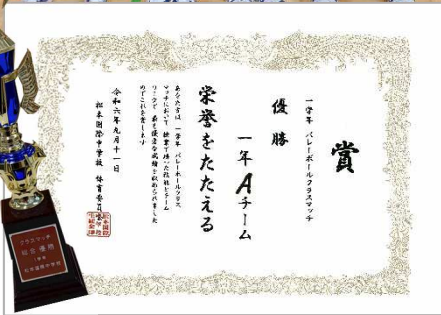 賞
一学年 バレーボールクラスマッチ
優勝
一年Aチーム
栄誉をたたえる
あなた方は 一学年 バレーボールクラス
マッチにおいて 授業で培った技能とチーム
ワークで 最も優秀な成績を収められました
のでこれを賞します
令和六年九月十一日
松本国際中学校 体育委員
クラスマッチ
総合優勝
1学年
松本国際中学校